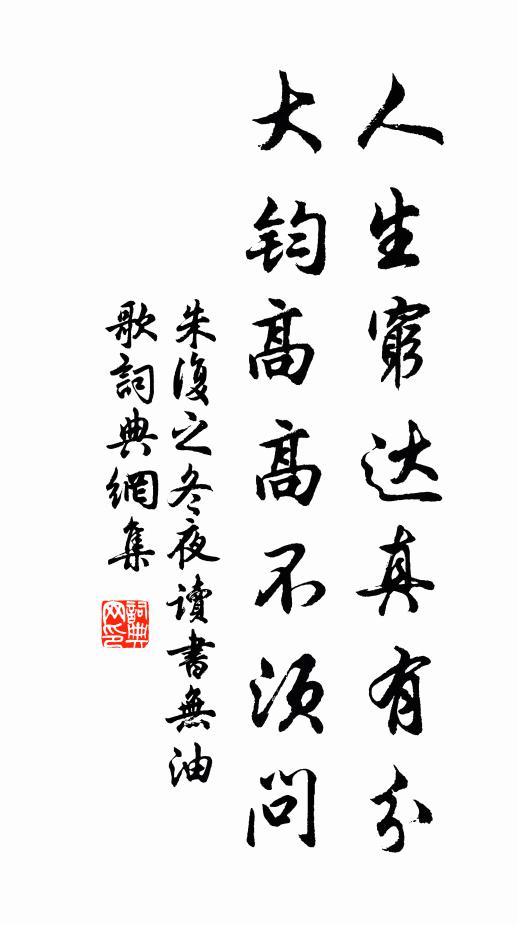 人生窮达真有分
大钧高高不须問
朱復之冬夜讀書無油
歌詞典網集
詞典
网印